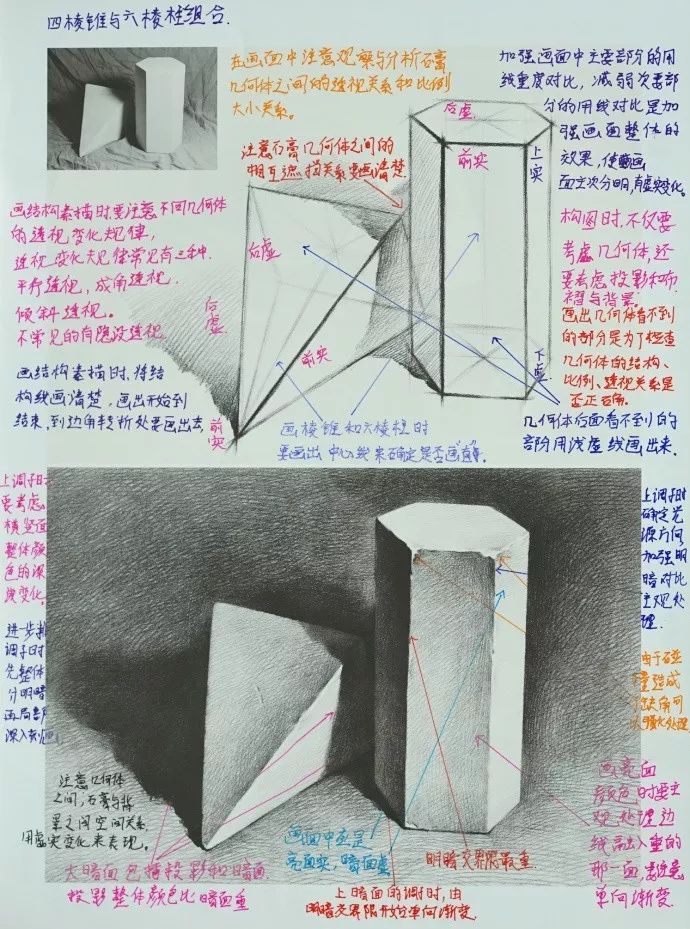 四棱锥与六棱柱组合.
在画面中注意观察与分析石膏
几何体之间的透视关系和比例
大小关系。
加强画面中主要部分的用
线重度对比，减弱次要部
分的用线对比是加
强画面整体的
效果，使画
面主次分明,有虚实变化.
注意石膏几何体之间的
相互遮挡关系要画清楚
后虚
前实
上实
画结构素描时要注意不同几何体
的透视变化规律,
透视变化规律常见有三种.
平行透视，成角透视,
倾斜透视。
不常见的有隐没透视
后虚
后虚
前实
前实
下虚
构图时,不仅要
考虑几何体,还
要考虑投影和布
褶与背景.
画出几何体看不到
的部分是为了检查
几何体的结构、
比例、透视关系是
否正确.
几何体后面看不到的
部分用浅虚线画出来.
画结构素描时,将结
构线画清楚，画出开始到
结束,到边角转折处要画出去
画棱锥和六棱柱时
要画出中心线来确定是否画"直"等.
上调子时
要考虑
横竖面
整体颜
色的深
浅变化.
进步刻
调子时
先整体
分明暗
画局部
深入刻画
上调子时
确定光
源方向,
加强明
暗对比
主观处
理.
由于碰
造成
缺角可
处理.
注意几何体
之间,石膏与背
景之间空间关系
用虚实变化来表现。
大暗面包括投影和暗面.
投影整体颜色比暗面重
画面中应是
亮面实,暗面虚
明暗交界限最重.
上暗面的调时,由
明暗交界限开始单向渐变.
画亮面
颜色时要主
观处理边
线融入重的
那一面,注意
单向渐变.